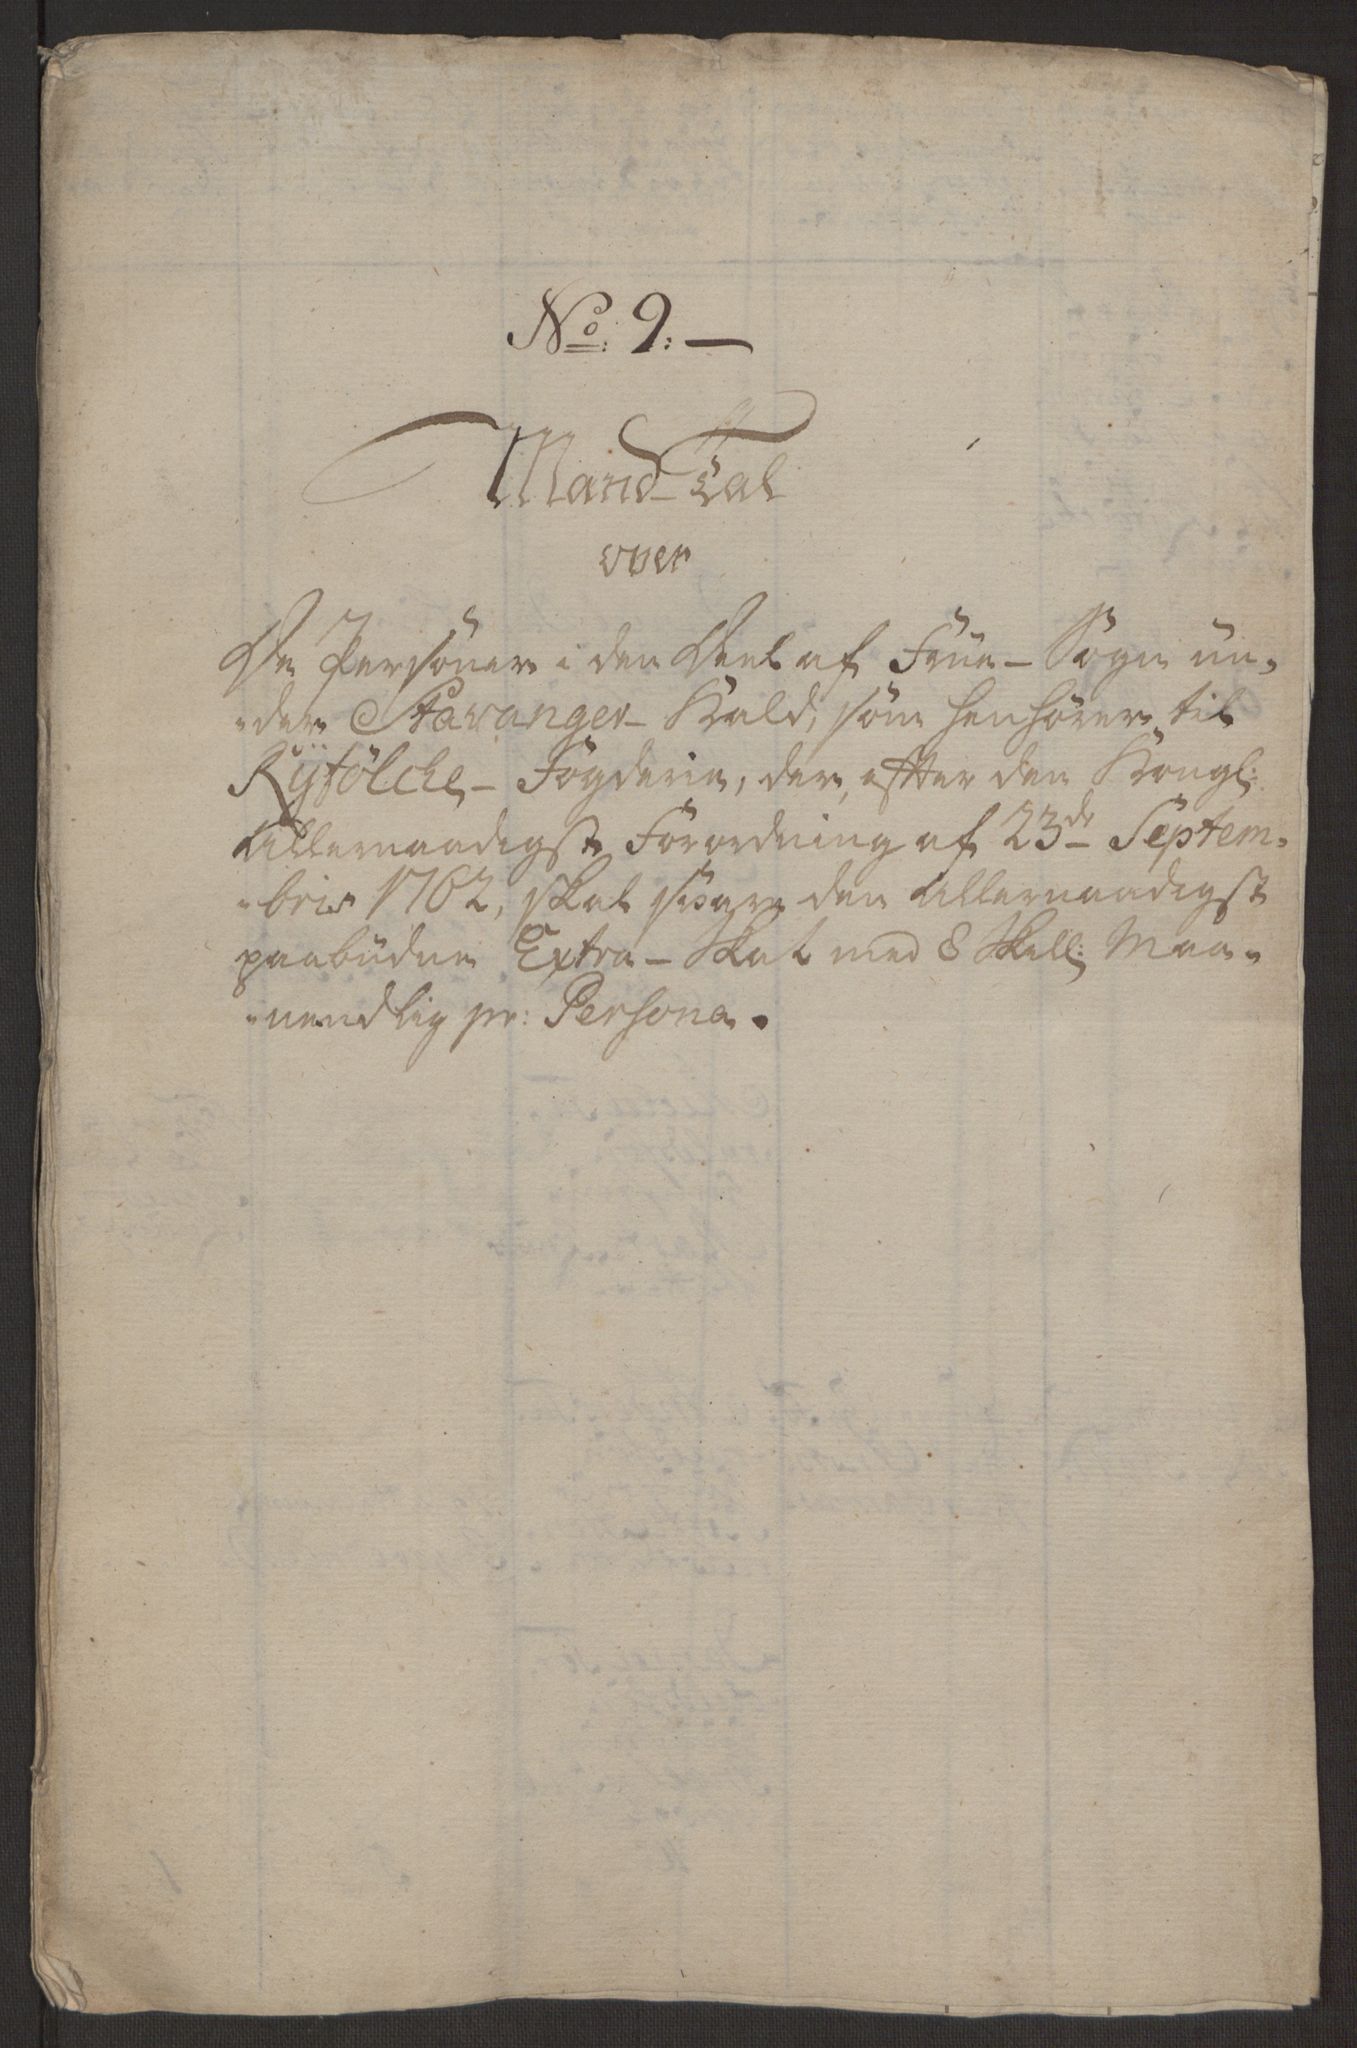 No: 9:—
Mand-Tal
over
De Persöner i den Deel af Früe-Sogn ün-
-der Stavanger-Kald, söm henhörer til
Ryfölche-Fögderie, der, efter den Kongl:
Allernaadigste Forordning af 23de Septem-
-bris 1762, skal svare den Allernaadigst
paabüdne Extra-Skat med 8 Skill: Maa-
-nendlig pr: Persona.